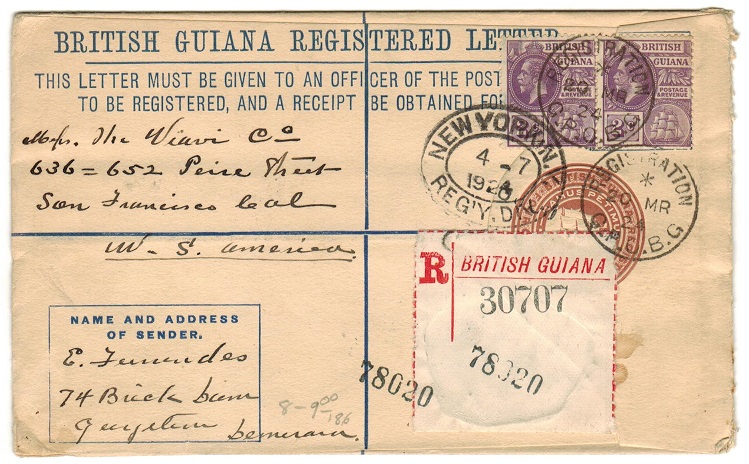 BRITISH GUIANA REGISTERED LETTER
THIS LETTER MUST BE GIVEN TO AN OFFICER OF THE POST
TO BE REGISTERED, AND A RECEIPT BE OBTAINED FO
BRITISH GUIANA
POSTAGE & REVENUE
2
BRITISH GUIANA
POSTAGE & REVENUE
2
REGISTRATION
MR
24
G.P.O. B.G
Messrs. The Viavi Co
636 = 652 Peirse Street
San Francisco Cal
U. S. America
NEW YORK
4 - 7
1924
REG'Y. DIV.
REGISTRATION
*
20 MR
G.P.O. B.G
R
BRITISH GUIANA
30707
78020
78020
NAME AND ADDRESS
OF SENDER.
E. Fernandes
74 Brick dam
Georgetown
Demerara.
8-9.00
.186